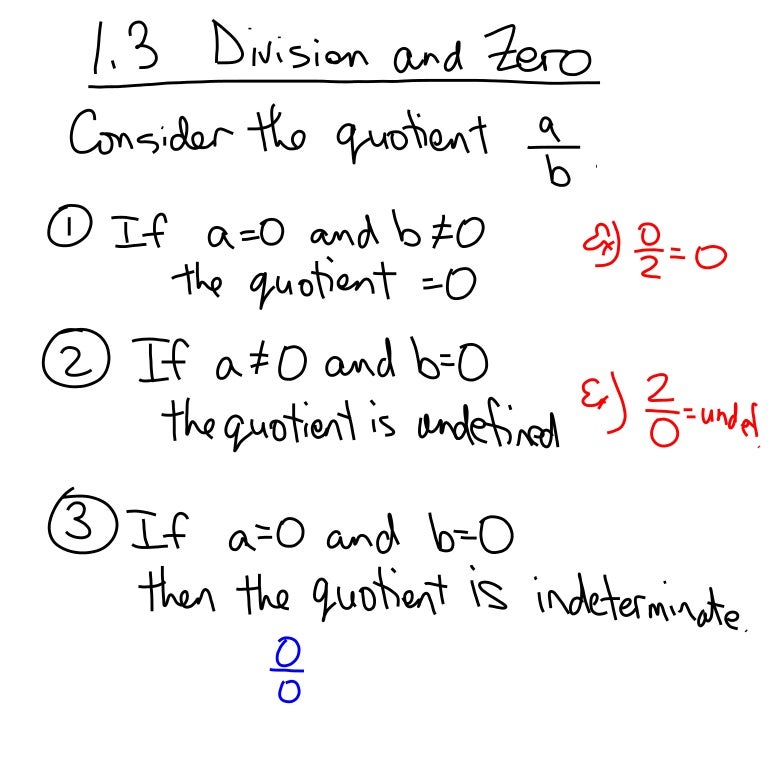 1.3 Division and Zero
Consider the quotient a/b.
① If a=0 and b≠0
the quotient =0
Ex) 0/2 = 0
② If a≠0 and b=0
the quotient is undefined
Ex) 2/0 = undef.
③ If a=0 and b=0
then the quotient is indeterminate.
0/0